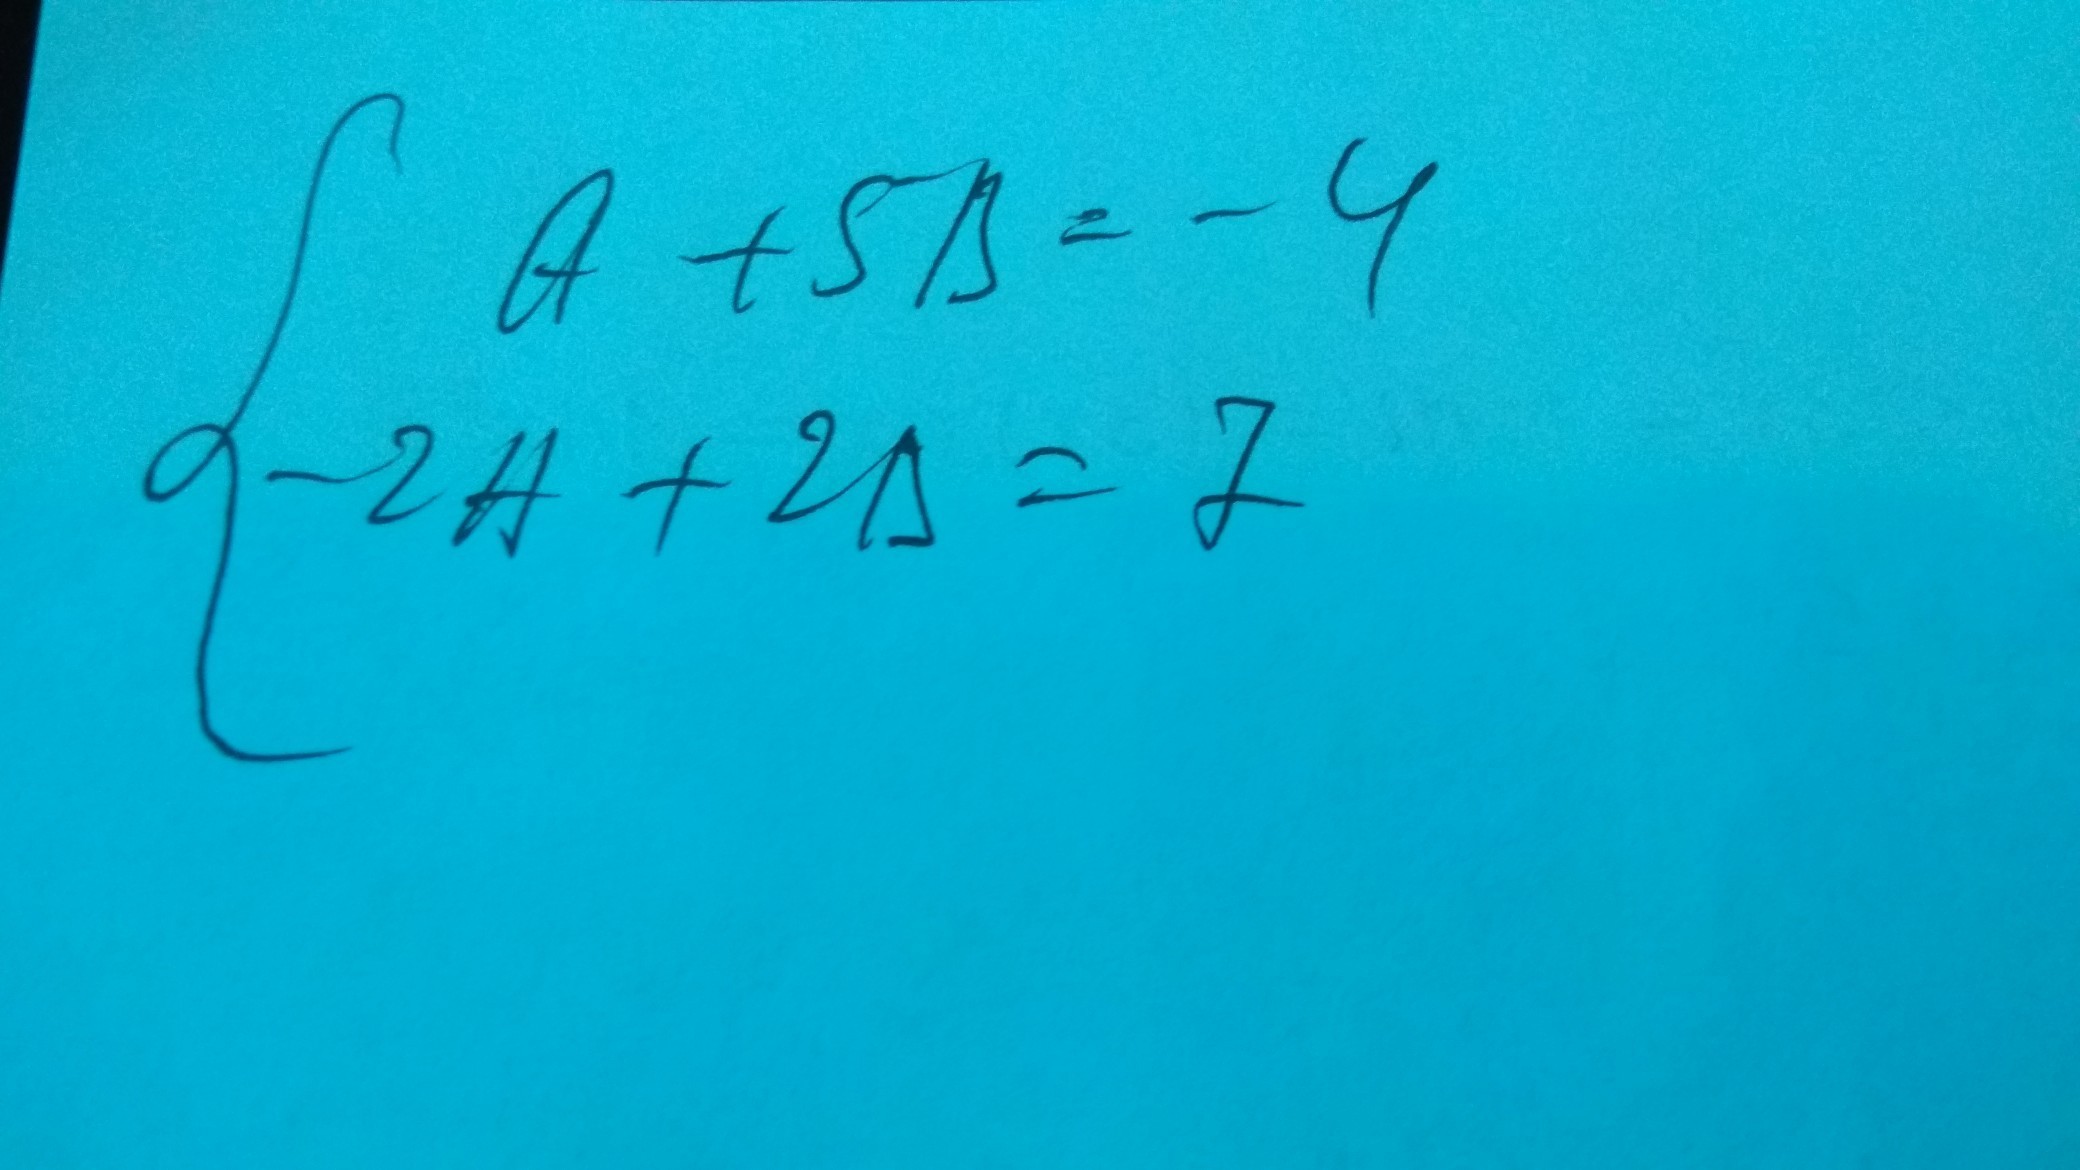 A + 5B = - 4
-2A + 2B = 7